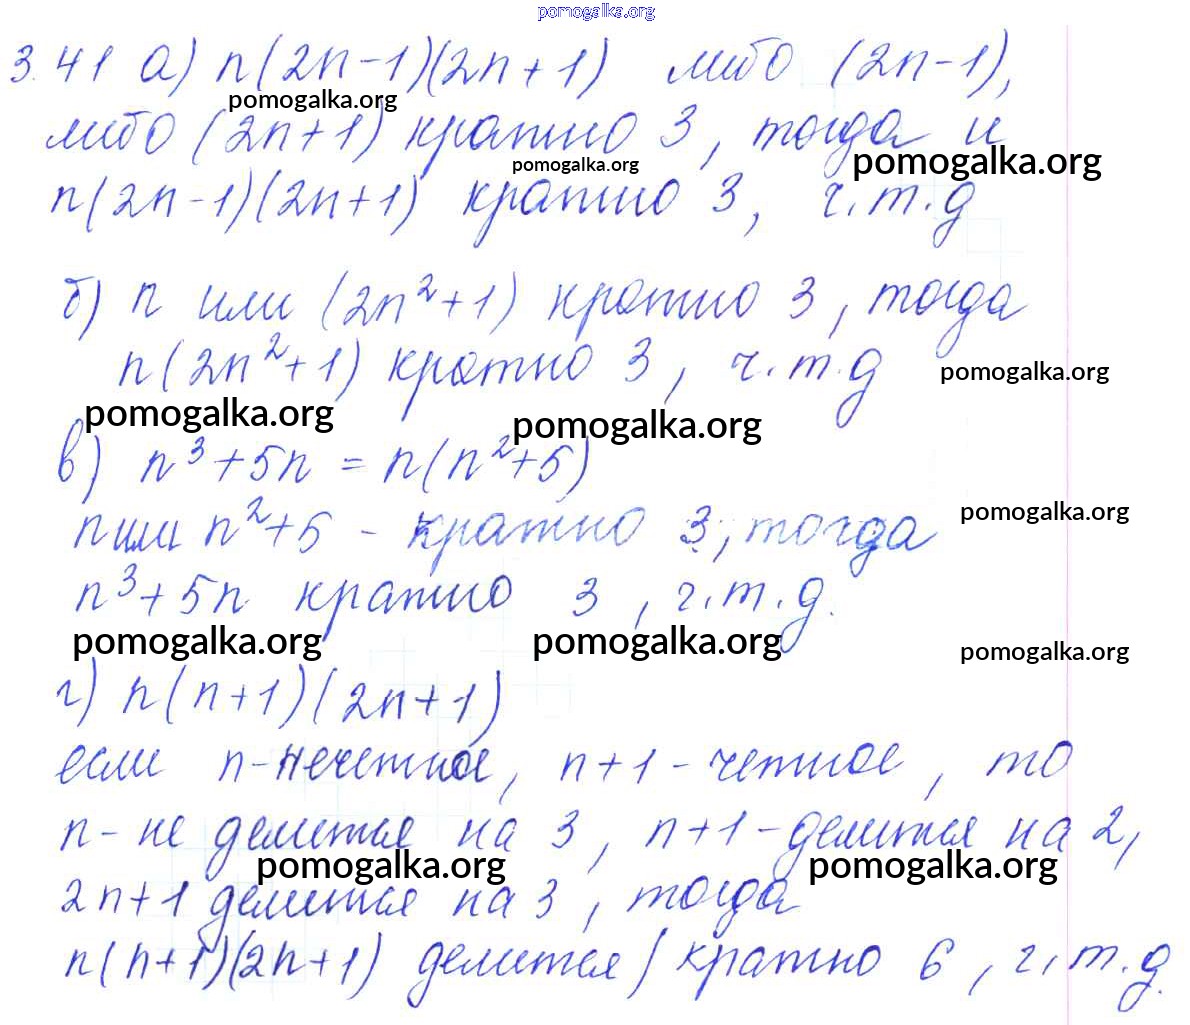 pomogalka.org
3.41 а) n(2n-1)(2n+1) либо (2n-1),
pomogalka.org
либо (2n+1) кратно 3, тогда и
pomogalka.org pomogalka.org
n(2n-1)(2n+1) кратно 3, ч.т.д
б) n или (2n²+1) кратно 3, тогда
n(2n²+1) кратно 3, ч.т.д
pomogalka.org
pomogalka.org pomogalka.org
в) n³+5n = n(n²+5)
n или n²+5 - кратно 3, тогда
pomogalka.org
n³+5n кратно 3, ч.т.д.
pomogalka.org pomogalka.org pomogalka.org
г) n(n+1)(2n+1)
если n-нечетное, n+1-четное, то
n-не делится на 3, n+1-делится на 2,
pomogalka.org pomogalka.org
2n+1 делится на 3, тогда
n(n+1)(2n+1) делится/кратно 6, ч.т.д.